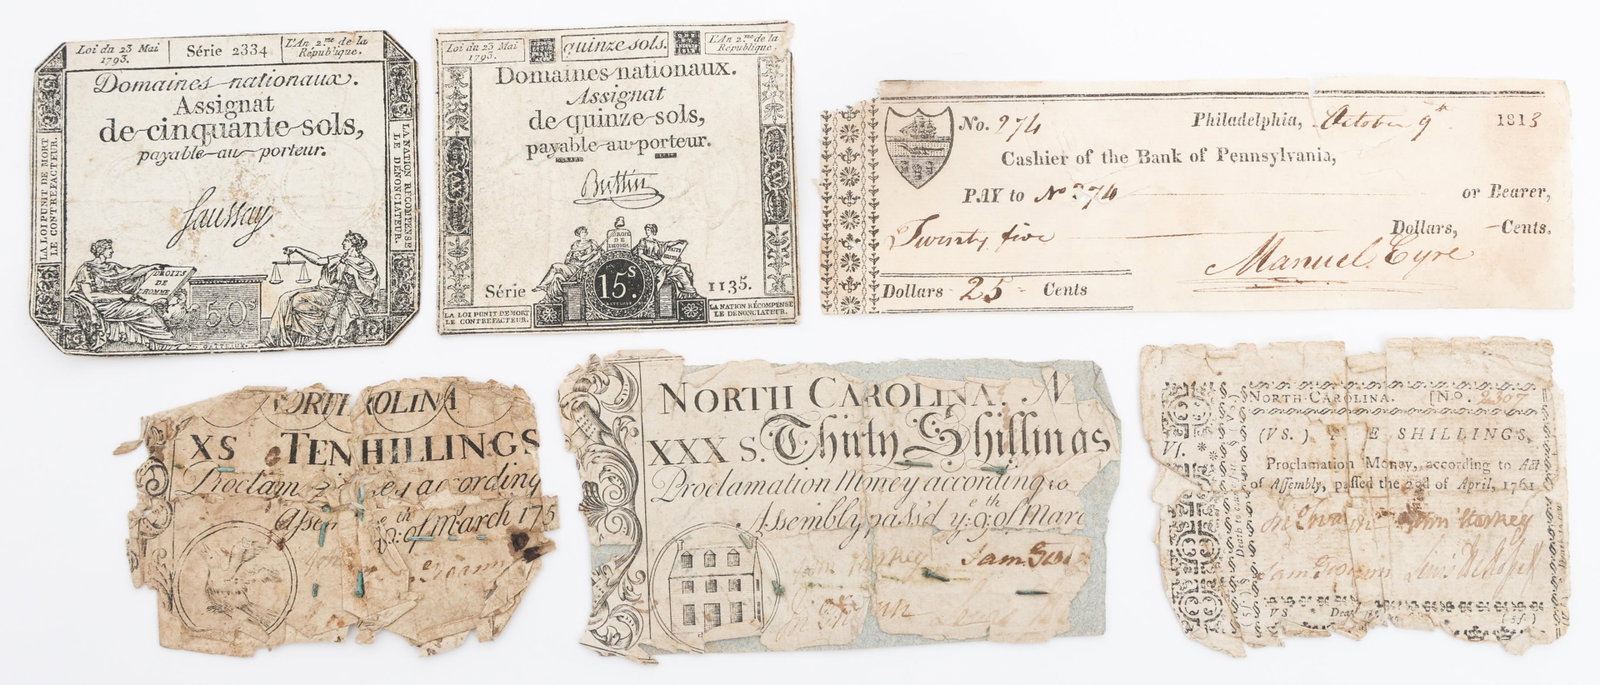 Loi du 23 Mai 1793.
Série 2334
L'An 2.me de la République.
Domaines nationaux.
Assignat
de cinquante sols,
payable au porteur.
Saussay
LA LOI PUNIT DE MORT
LE CONTREFACTEUR.
LA NATION RÉCOMPENSE
LE DÉNONCIATEUR.
DROITS
DE
L'HOMME
50
Loi du 23 Mai 1793.
quinze sols.
L'An 2.me de la République.
Domaines nationaux.
Assignat
de quinze sols,
payable au porteur.
Buttin
DROITS
DE
L'HOMME
15.s
Série 1135.
LA LOI PUNIT DE MORT
LE CONTREFACTEUR.
LA NATION RÉCOMPENSE
LE DENONCIATEUR.
No. 274 Philadelphia, October 9th 1813
Cashier of the Bank of Pennsylvania,
PAY to No 274 or Bearer,
Twenty five Dollars, Cents,
Manuel Eyre
Dollars 25 Cents
XS TEN HILLINGS
Proclam according
of March 175
NORTH CAROLINA. N
XXX S. Thirty Shillings
Proclamation Money according to
Assembly pass'd ye 9th of Mar
Sam
NORTH-CAROLINA. [No. 2307
VI.
(VS.) E SHILLINGS,
Proclamation Money, according to Act
of Assembly, passed the 23d of April, 1761
Death to
VS Dea